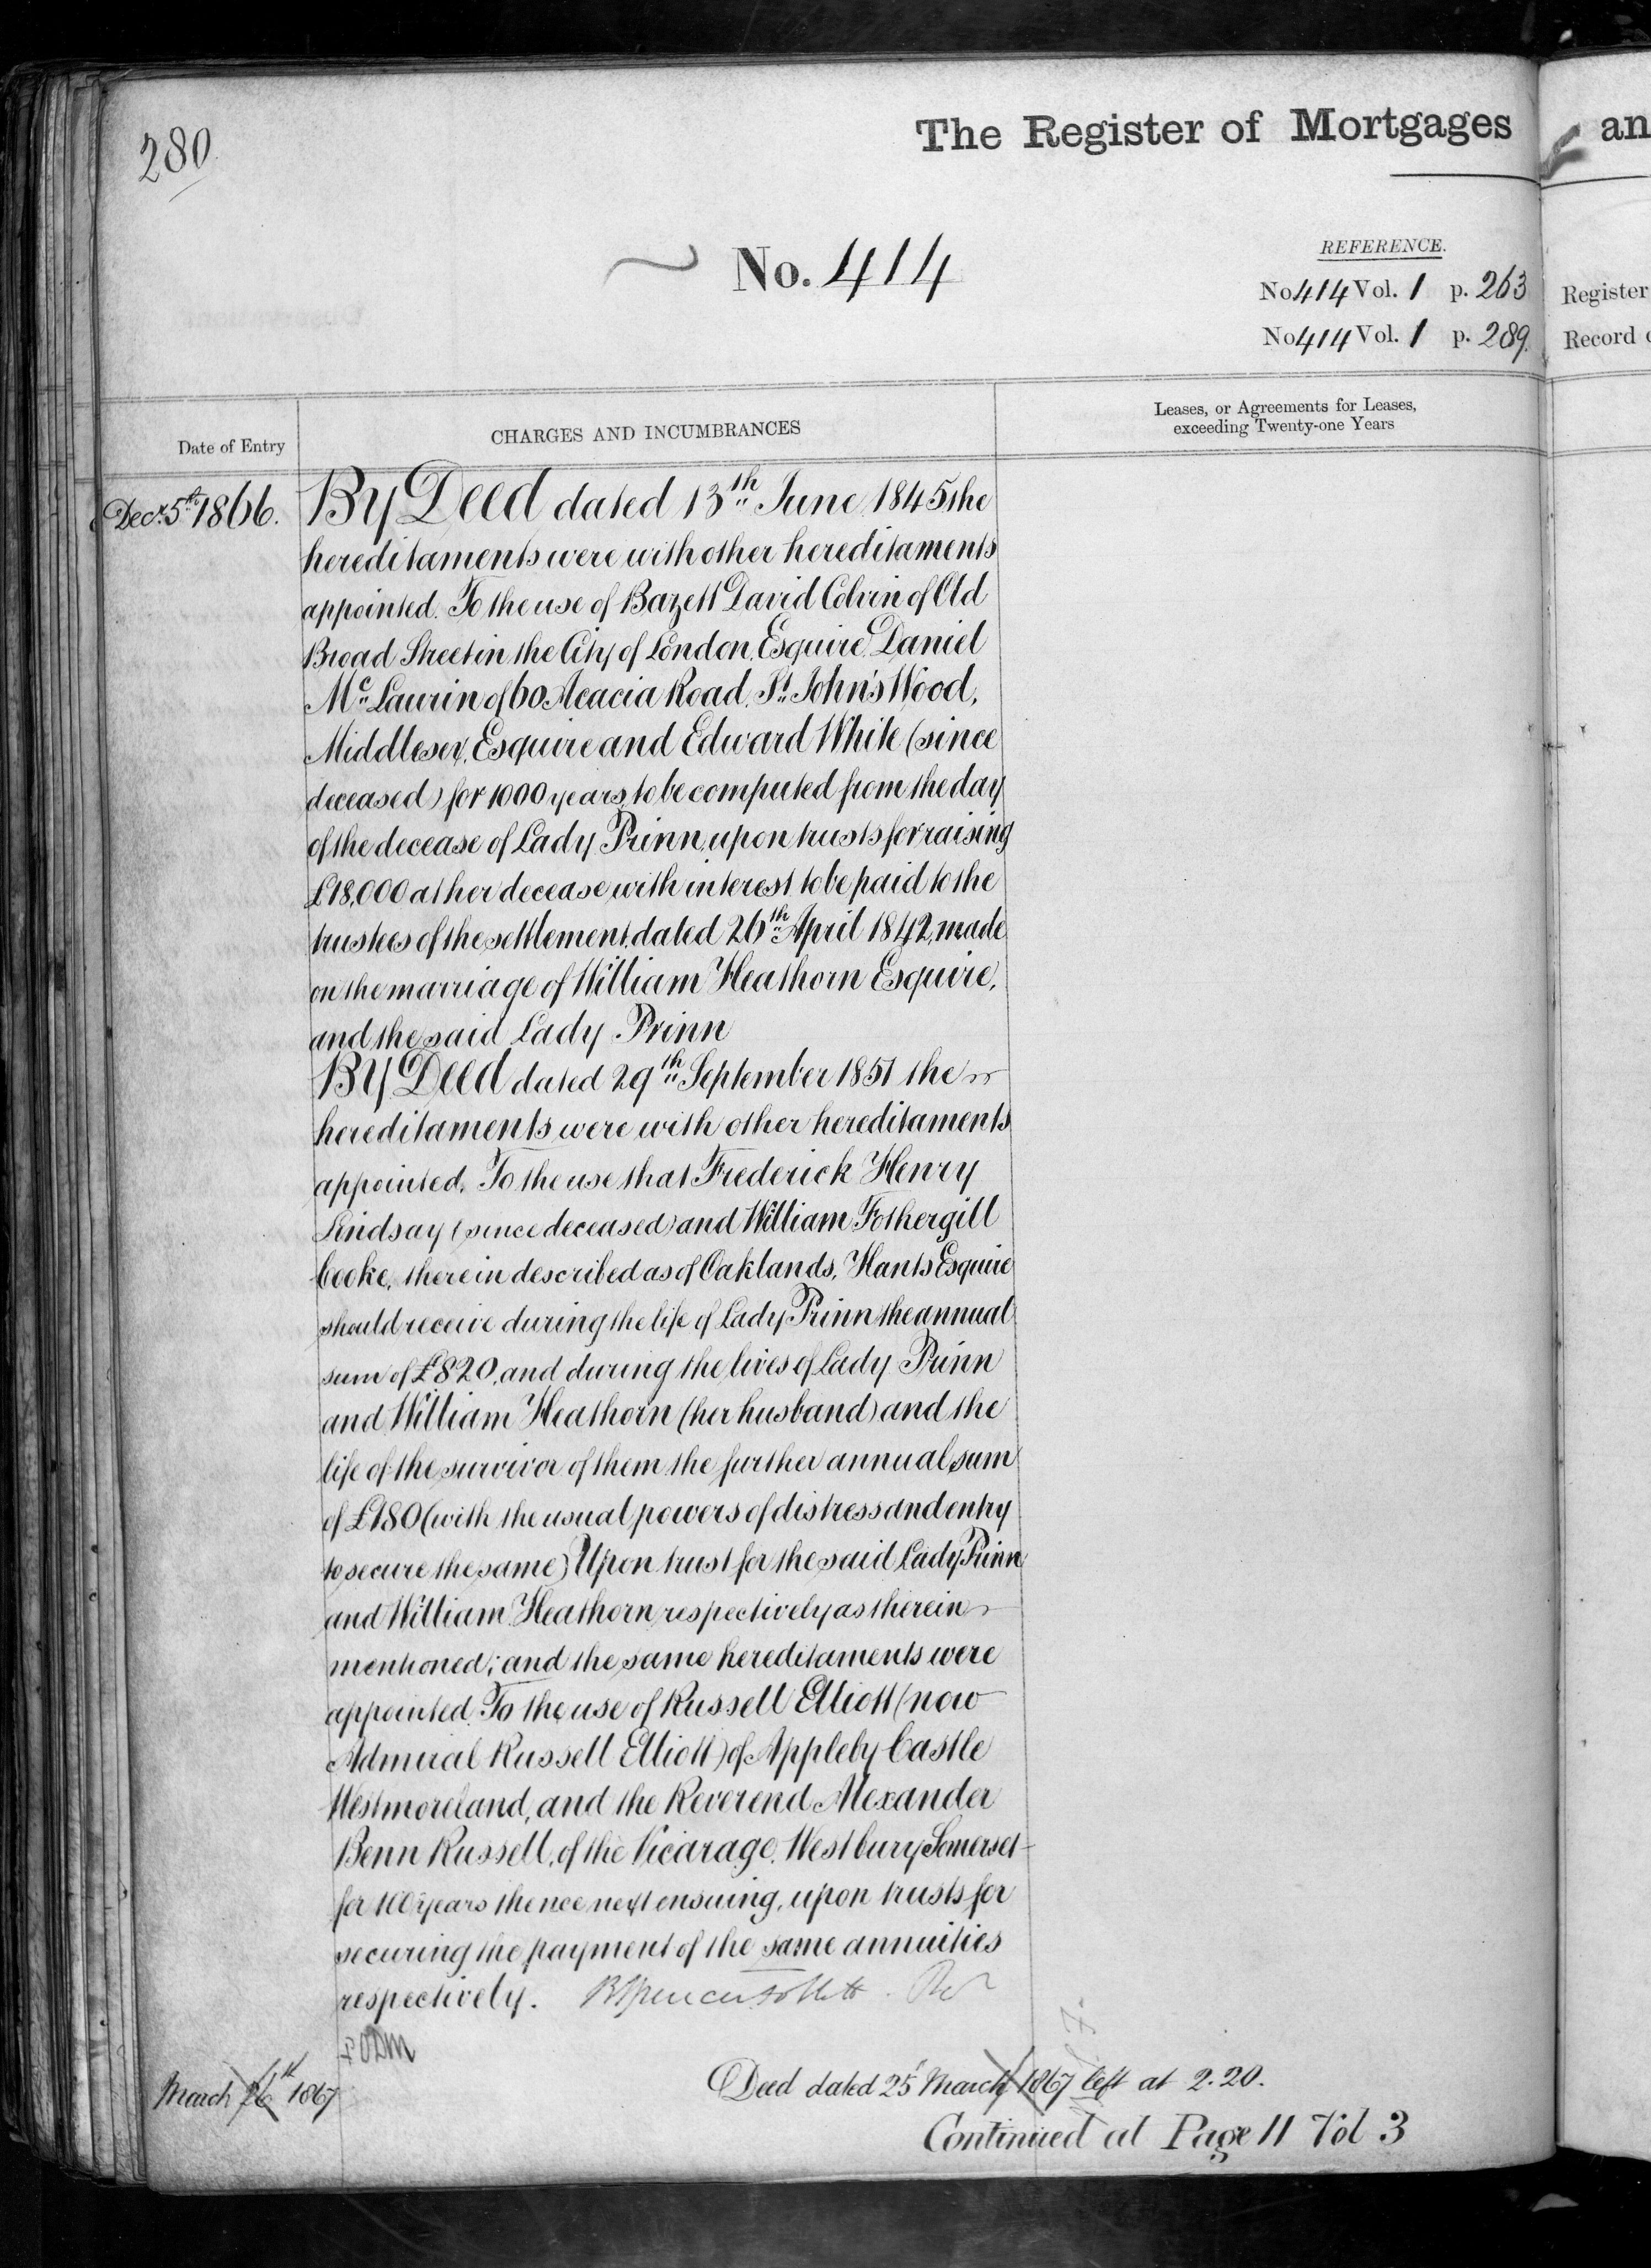 280
The Register of Mortgages
an
No. 414
REFERENCE.
No 414 Vol. 1 p. 263
Register
No 414 Vol. 1 p. 289.
Record
Date of Entry
CHARGES AND INCUMBRANCES
Leases, or Agreements for Leases,
exceeding Twenty-one Years
Decr. 5th 1866.
By Deed dated 13th June 1845 the
hereditaments were with other hereditaments
appointed. To the use of Bazett David Colvin of Old
Broad Street in the City of London, Esquire, Daniel
Mc Laurin of 60 Acacia Road, St. John's Wood,
Middlesex, Esquire and Edward White (since
deceased) for 1000 years, to be computed from the day
of the decease of Lady Prinn, upon trusts for raising
£18,000 at her decease with interest to be paid to the
trustees of the settlement, dated 26th April 1842, made
on the marriage of William Heathorn Esquire,
and the said Lady Prinn
By Deed dated 29th September 1851 the
hereditaments were with other hereditaments
appointed, To the use that Frederick Henry
Lindsay (since deceased) and William Fothergill
Cooke, therein described as of Oaklands, Hants Esquire
should receive during the life of Lady Prinn the annual
sum of £820, and during the lives of Lady Prinn
and William Heathorn (her husband) and the
life of the survivor of them the further annual sum
of £180 (with the usual powers of distress and entry
to secure the same) Upon trust for the said Lady Prinn
and William Heathorn respectively as therein
mentioned; and the same hereditaments were
appointed To the use of Russell Elliott (now
Admiral Russell Elliott) of Appleby Castle
Westmoreland, and the Reverend Alexander
Benn Russell, of the Vicarage, Westbury Somerset
for 100 years thence next ensuing, upon trusts for
securing the payment of the same annuities
respectively.
March 26th 1867
Deed dated 25 March 1867 left at 2.20.
Continued at Page 11 Vol 3